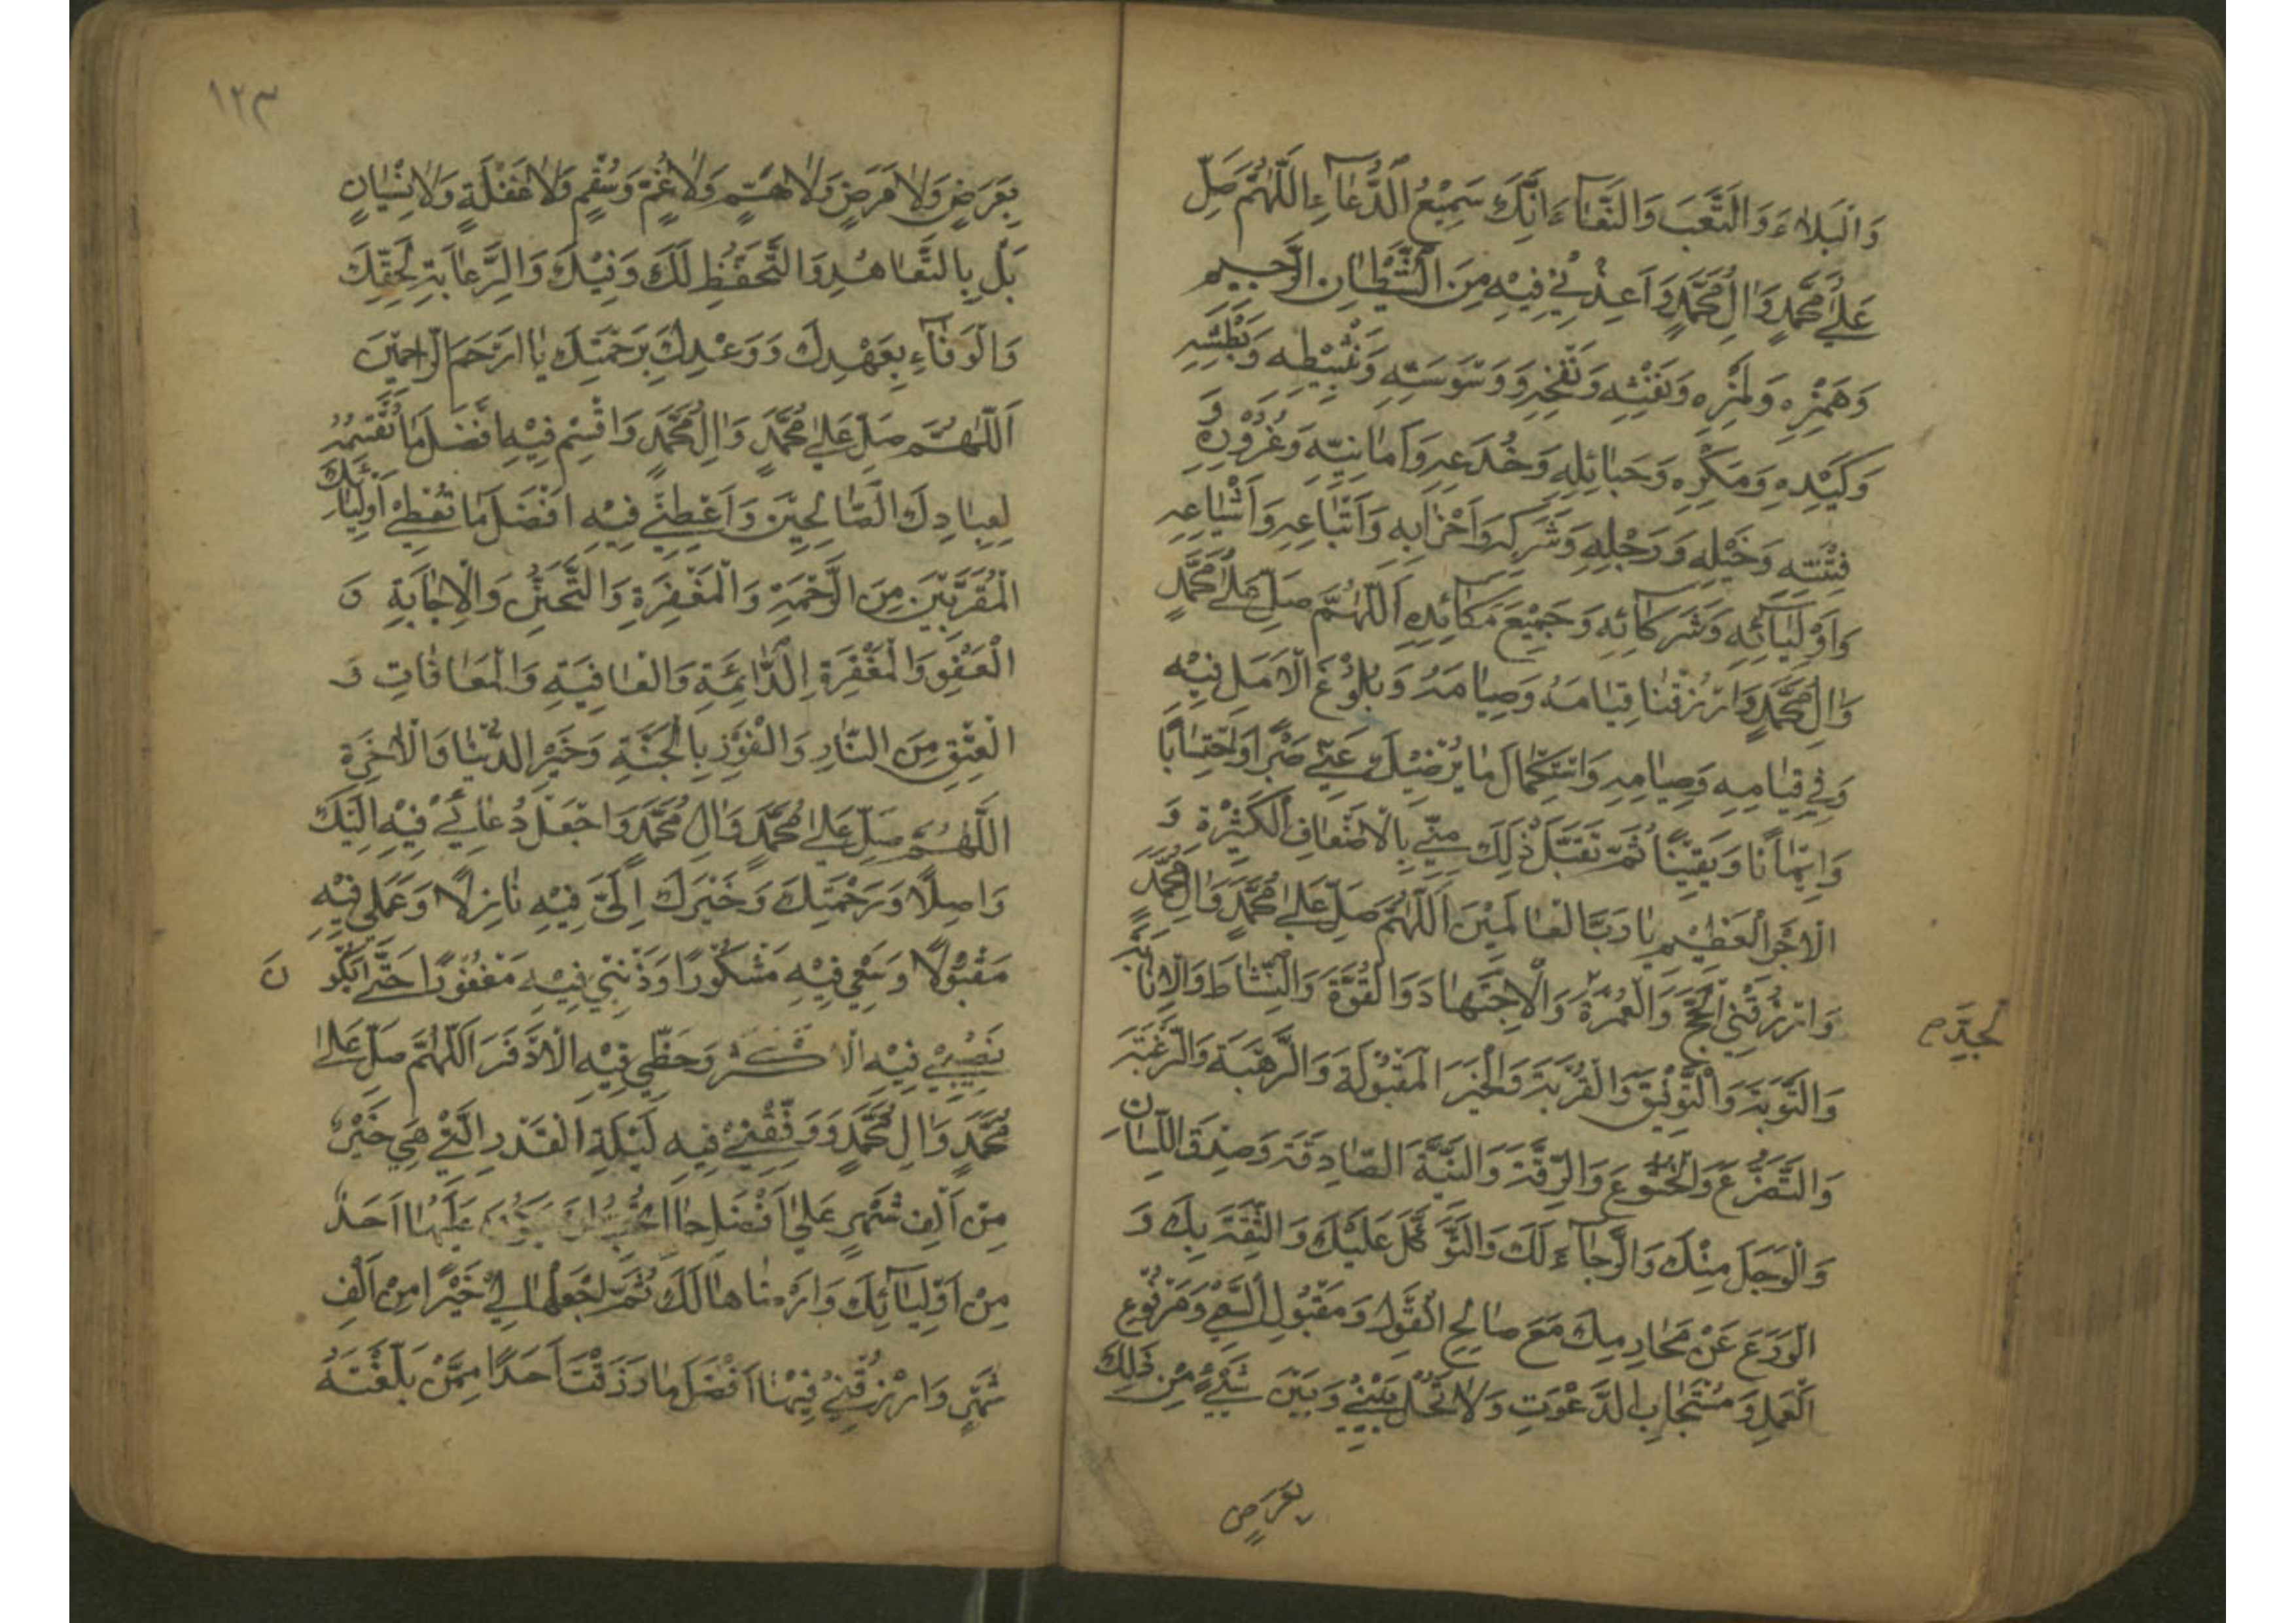 وَالْبَلَاءَ وَالتَّعَبَ وَالْعَنَاءَ اِنَّكَ سَمِيْعُ الدُّعَآءِ اَللّٰهُمَّ صَلِّ
عَلٰى مُحَمَّدٍ وَاٰلِ مُحَمَّدٍ وَاَعِذْنِي فِيْهِ مِنَ الشَّيْطَانِ الرَّجِيمِ
وَهَمْزِهِ وَلَمْزِهِ وَنَفْثِهِ وَنَفْخِهِ وَوَسْوَسَتِهِ وَتَثْبِيْطِهِ وَبَطْشِهِ
وَكَيْدِهِ وَمَكْرِهِ وَحَبَائِلِهِ وَخُدَعِهِ وَاَمَانِيِّهِ وَغُرُوْرِهِ وَ
فِتْنَتِهِ وَخَيْلِهِ وَرَجْلِهِ وَشَرَكِهِ وَاَحْزَابِهِ وَاَتْبَاعِهِ وَاَشْيَاعِهِ
وَاَوْلِيَآئِهِ وَشُرَكَآئِهِ وَجَمِيْعَ مَكَآئِدِهِ اَللّٰهُمَّ صَلِّ عَلٰى مُحَمَّدٍ
وَاٰلِ مُحَمَّدٍ وَارْزُقْنَا قِيَامَهُ وَصِيَامَهُ وَبُلُوْغَ الْاَمَلِ فِيْهِ
وَفِي قِيَامِهِ وَصِيَامِهِ وَاسْتِكْمَالَ مَا يُرْضِيْكَ عَنِّي صَبْرًا وَاحْتِسَابًا
وَاِيْمَانًا وَيَقِيْنًا ثُمَّ تَقَبَّلْ ذٰلِكَ مِنِّي بِالْاَضْعَافِ الْكَثِيْرَةِ وَ
الْاَجْرِ الْعَظِيْمِ يَا رَبَّ الْعَالَمِيْنَ اَللّٰهُمَّ صَلِّ عَلٰى مُحَمَّدٍ وَاٰلِ مُحَمَّدٍ
وَارْزُقْنِي الْحَجَّ وَالْعُمْرَةَ وَالْاِجْتِهَادَ وَالْقُوَّةَ وَالنَّشَاطَ وَالْاِنَابَةَ
الْجِدَّ
وَالتَّوْبَةَ وَالتَّوْفِيْقَ وَالْقُرْبَةَ وَالْخَيْرَ الْمَقْبُوْلَةَ وَالرَّهْبَةَ وَالرَّغْبَةَ
وَالتَّضَرُّعَ وَالْخُشُوْعَ وَالرِّقَّةَ وَالنِّيَّةَ الصَّادِقَةَ وَصِدْقَ اللِّسَانِ
وَالْوَجَلَ مِنْكَ وَالرَّجَآءَ لَكَ وَالتَّوَكُّلَ عَلَيْكَ وَالثِّقَةَ بِكَ وَ
الْوَرَعَ عَنْ مَحَارِمِكَ مَعَ صَالِحِ الْقَوْلِ وَمَقْبُوْلِ السَّعْيِ وَمَرْفُوْعِ
الْعَمَلِ وَمُسْتَجَابِ الدَّعْوَتِ وَلَا تَحُلْ بَيْنِي وَبَيْنَ شَيْءٍ مِنْ ذٰلِكَ
بِعَرَضٍ
١٢٣
بِعَرَضٍ وَلَا مَرَضٍ وَلَا هَمٍّ وَلَا غَمٍّ وَسُقْمٍ وَلَا غَفْلَةٍ وَلَا نِسْيَانٍ
بَلْ بِالتَّعَاهُدِ وَالتَّحَفُّظِ لَكَ وَفِيْكَ وَالرِّعَايَةِ لِحَقِّكَ
وَالْوَفَآءِ بِعَهْدِكَ وَوَعْدِكَ بِرَحْمَتِكَ يَا اَرْحَمَ الرَّاحِمِيْنَ
اَللّٰهُمَّ صَلِّ عَلٰى مُحَمَّدٍ وَاٰلِ مُحَمَّدٍ وَاقْسِمْ فِيْهِ اَفْضَلَ مَا تُقَسِّمُهُ
لِعِبَادِكَ الصَّالِحِيْنَ وَاَعْطِنِي فِيْهِ اَفْضَلَ مَا تُعْطِي اَوْلِيَائِكَ
الْمُقَرَّبِيْنَ مِنَ الرَّحْمَةِ وَالْمَغْفِرَةِ وَالتَّحَنُّنِ وَالْاِجَابَةِ وَ
الْعَفْوِ وَالْمَغْفِرَةِ الدَّائِمَةِ وَالْعَافِيَةِ وَالْمُعَافَاتِ وَ
الْعِتْقِ مِنَ النَّارِ وَالْفَوْزِ بِالْجَنَّةِ وَخَيْرِ الدُّنْيَا وَالْاٰخِرَةِ
اَللّٰهُمَّ صَلِّ عَلٰى مُحَمَّدٍ وَاٰلِ مُحَمَّدٍ وَاجْعَلْ دُعَائِي فِيْهِ اِلَيْكَ
وَاصِلًا وَرَحْمَتِكَ وَخَيْرَكَ اِلَيَّ فِيْهِ نَازِلًا وَعَمَلِي فِيْهِ
مَقْبُوْلًا وَسَعْيِي فِيْهِ مَشْكُوْرًا وَذَنْبِي فِيْهِ مَغْفُوْرًا حَتّٰى يَكُوْنَ
نَصِيْبِي فِيْهِ الْاَكْثَرُ وَحَظِّي فِيْهِ الْاَوْفَرَ اَللّٰهُمَّ صَلِّ عَلٰى
مُحَمَّدٍ وَاٰلِ مُحَمَّدٍ وَوَفِّقْنِي فِيهِ لَيْلَةِ الْقَدْرِ الَّتِي هِيَ خَيْرٌ
مِنْ اَلْفِ شَهْرٍ عَلٰى اَفْضَلِ حَالٍ تُحِبُّ اَنْ يَكُوْنَ عَلَيْهَا اَحَدٌ
مِنْ اَوْلِيَآئِكَ وَاَرْضَاهَا لَكَ ثُمَّ اجْعَلْهَا لِي خَيْرًا مِنْ اَلْفِ
شَهْرٍ وَارْزُقْنِي فِيْهَا اَفْضَلَ مَا رَزَقْتَ اَحَدًا مِمَّنْ بَلَّغْتَهُ